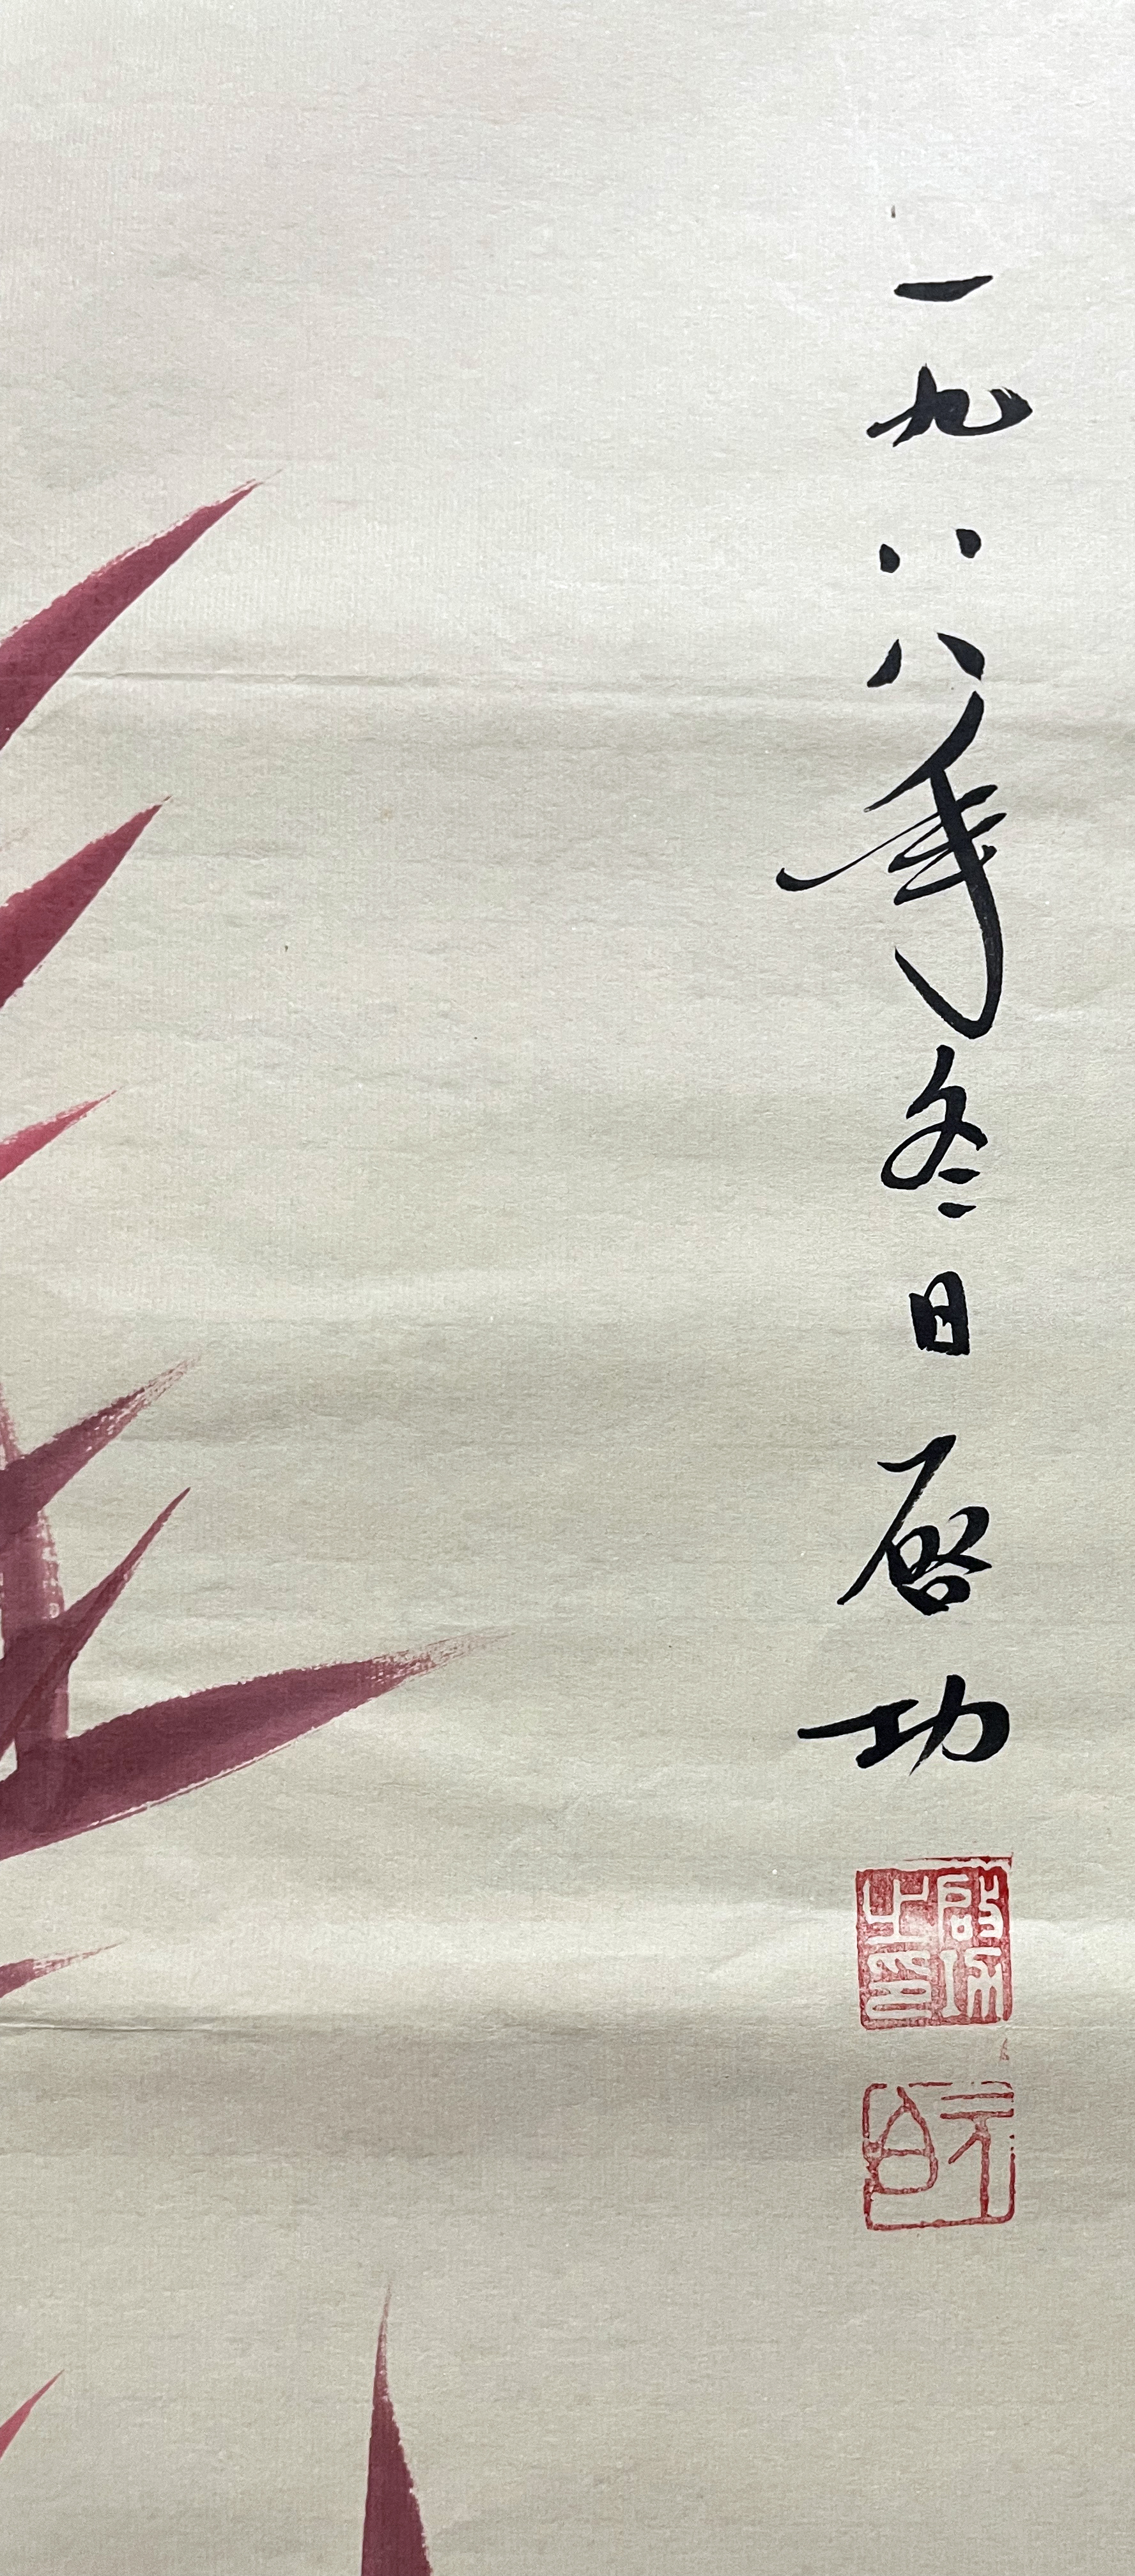 一九八八年冬日启功
啟功之印
元白